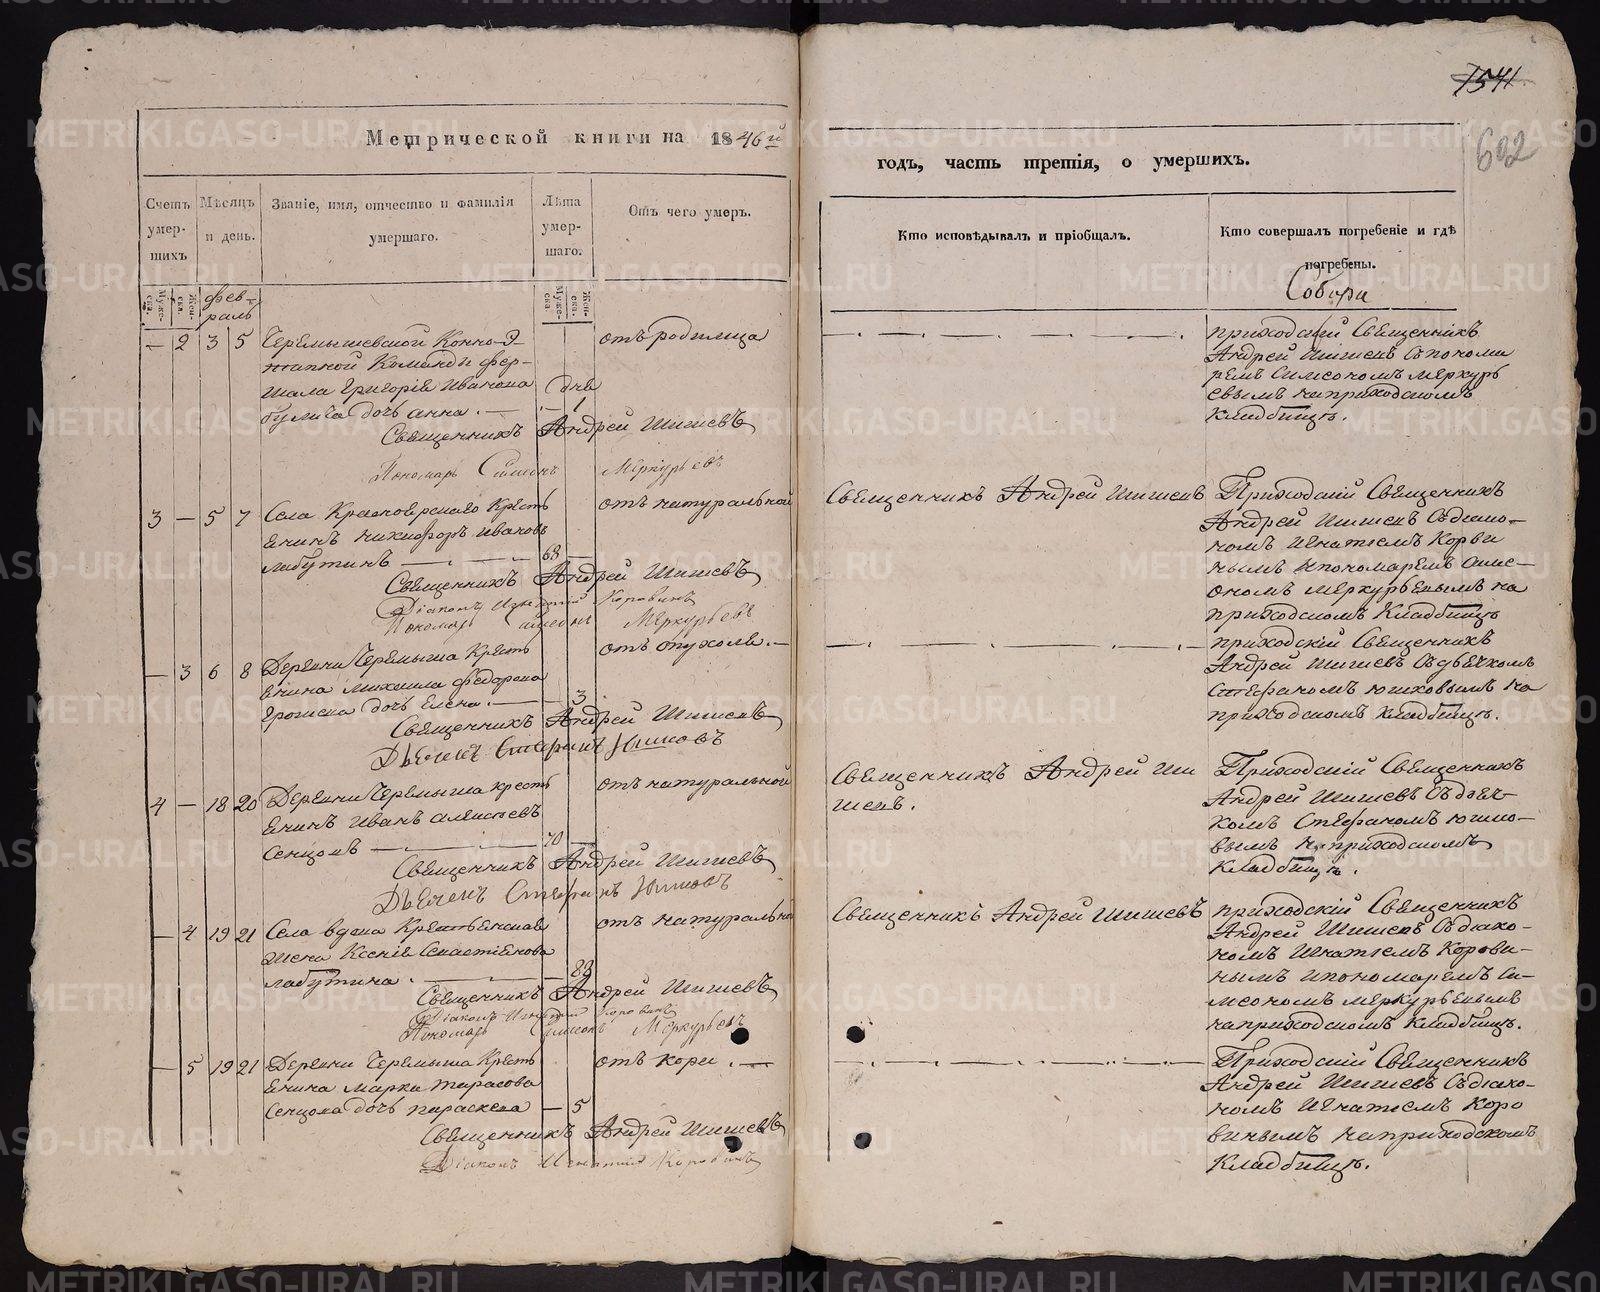 1541
602
Метрической книги на 1846й
годъ, часть третія, о умершихъ.
Счетъ умер- шихъ
Мѣсяцъ и день.
Званіе, имя, отчество и фамилія умершаго.
Лѣта умер- шаго.
Отъ чего умеръ.
Кто исповѣдывалъ и пріобщалъ.
Кто совершалъ погребеніе и гдѣ погребены.
Муже- ска. Жен- ска.
фев-
раль
Муже- ска. Жен- ска.
— 2 3 5 Черемышевской Конно-Э-
тапной Команды фер-
шала Григорія Иванова
дочь анна. — 1 дня
отъ родимца
Священникъ Андрей Шишевъ
Пономарь Симеонъ Меркурьевъ
приходскій Священникъ
Андрей Шишевъ съ понома
ремъ Симеономъ Меркурь
евымъ на приходскомъ
кладбищѣ.
3 — 5 7 Села Красноярскаго Кресть
янинъ Никифоръ Ивановъ
лабутинъ — 68 —
отъ натуральной
Священникъ Андрей Шишевъ
Діаконъ Игнатій Коровинъ
Пономарь Симеонъ Меркурьевъ
Священникъ Андрей Шишевъ
Приходскій Священникъ
Андрей Шишевъ съ діако-
номъ Игнатіемъ Корови
нымъ и пономаремъ Симе-
ономъ Меркурьевымъ на
приходскомъ Кладбищѣ
— 3 6 8 Деревни Черемыша Кресть
янина Михаила Федорова
дочь Елена. — 3
отъ опухоли. —
Священникъ Андрей Шишевъ
Дьячекъ Стефанъ Юшковъ
приходскій Священникъ
Андрей Шишевъ съ дьячкомъ
Стефаномъ Юшковымъ на
приходскомъ кладбищѣ.
4 — 18 20 Деревни Черемыша кресть
янинъ Иванъ Алексѣевъ
Сенцовъ — 70 —
отъ натуральной
Священникъ Андрей Шишевъ
Дьячекъ Стефанъ Юшковъ
Священникъ Андрей Ши
шевъ.
Приходскій Священникъ
Андрей Шишевъ съ дьяч-
комъ Стефаномъ Юшко-
вымъ на приходскомъ
Кладбищѣ.
— 4 19 21 Села вдова Крестьянская
жена Ксенія Севастіянова
лабутина. — 83
отъ натуральной
Священникъ Андрей Шишевъ
Діаконъ Игнатій Коровинъ
Пономарь Симеонъ Меркурьевъ
Священникъ Андрей Шишевъ
приходскій Священникъ
Андрей Шишевъ съ діако-
номъ Игнатіемъ Корови-
нымъ и пономаремъ Си-
меономъ Меркурьевымъ
на приходскомъ кладбищѣ.
— 5 19 21 Деревни Черемыша Кресть
янина Марка Тарасова
Сенцова дочь параскева — 5
отъ кори. —
Священникъ Андрей Шишевъ
Діаконъ Игнатій Коровинъ
Приходскій Священникъ
Андрей Шишевъ съ діако-
номъ Игнатіемъ Коро
винымъ на приходскомъ
Кладбищѣ.
METRIKI.GASO-URAL.RU